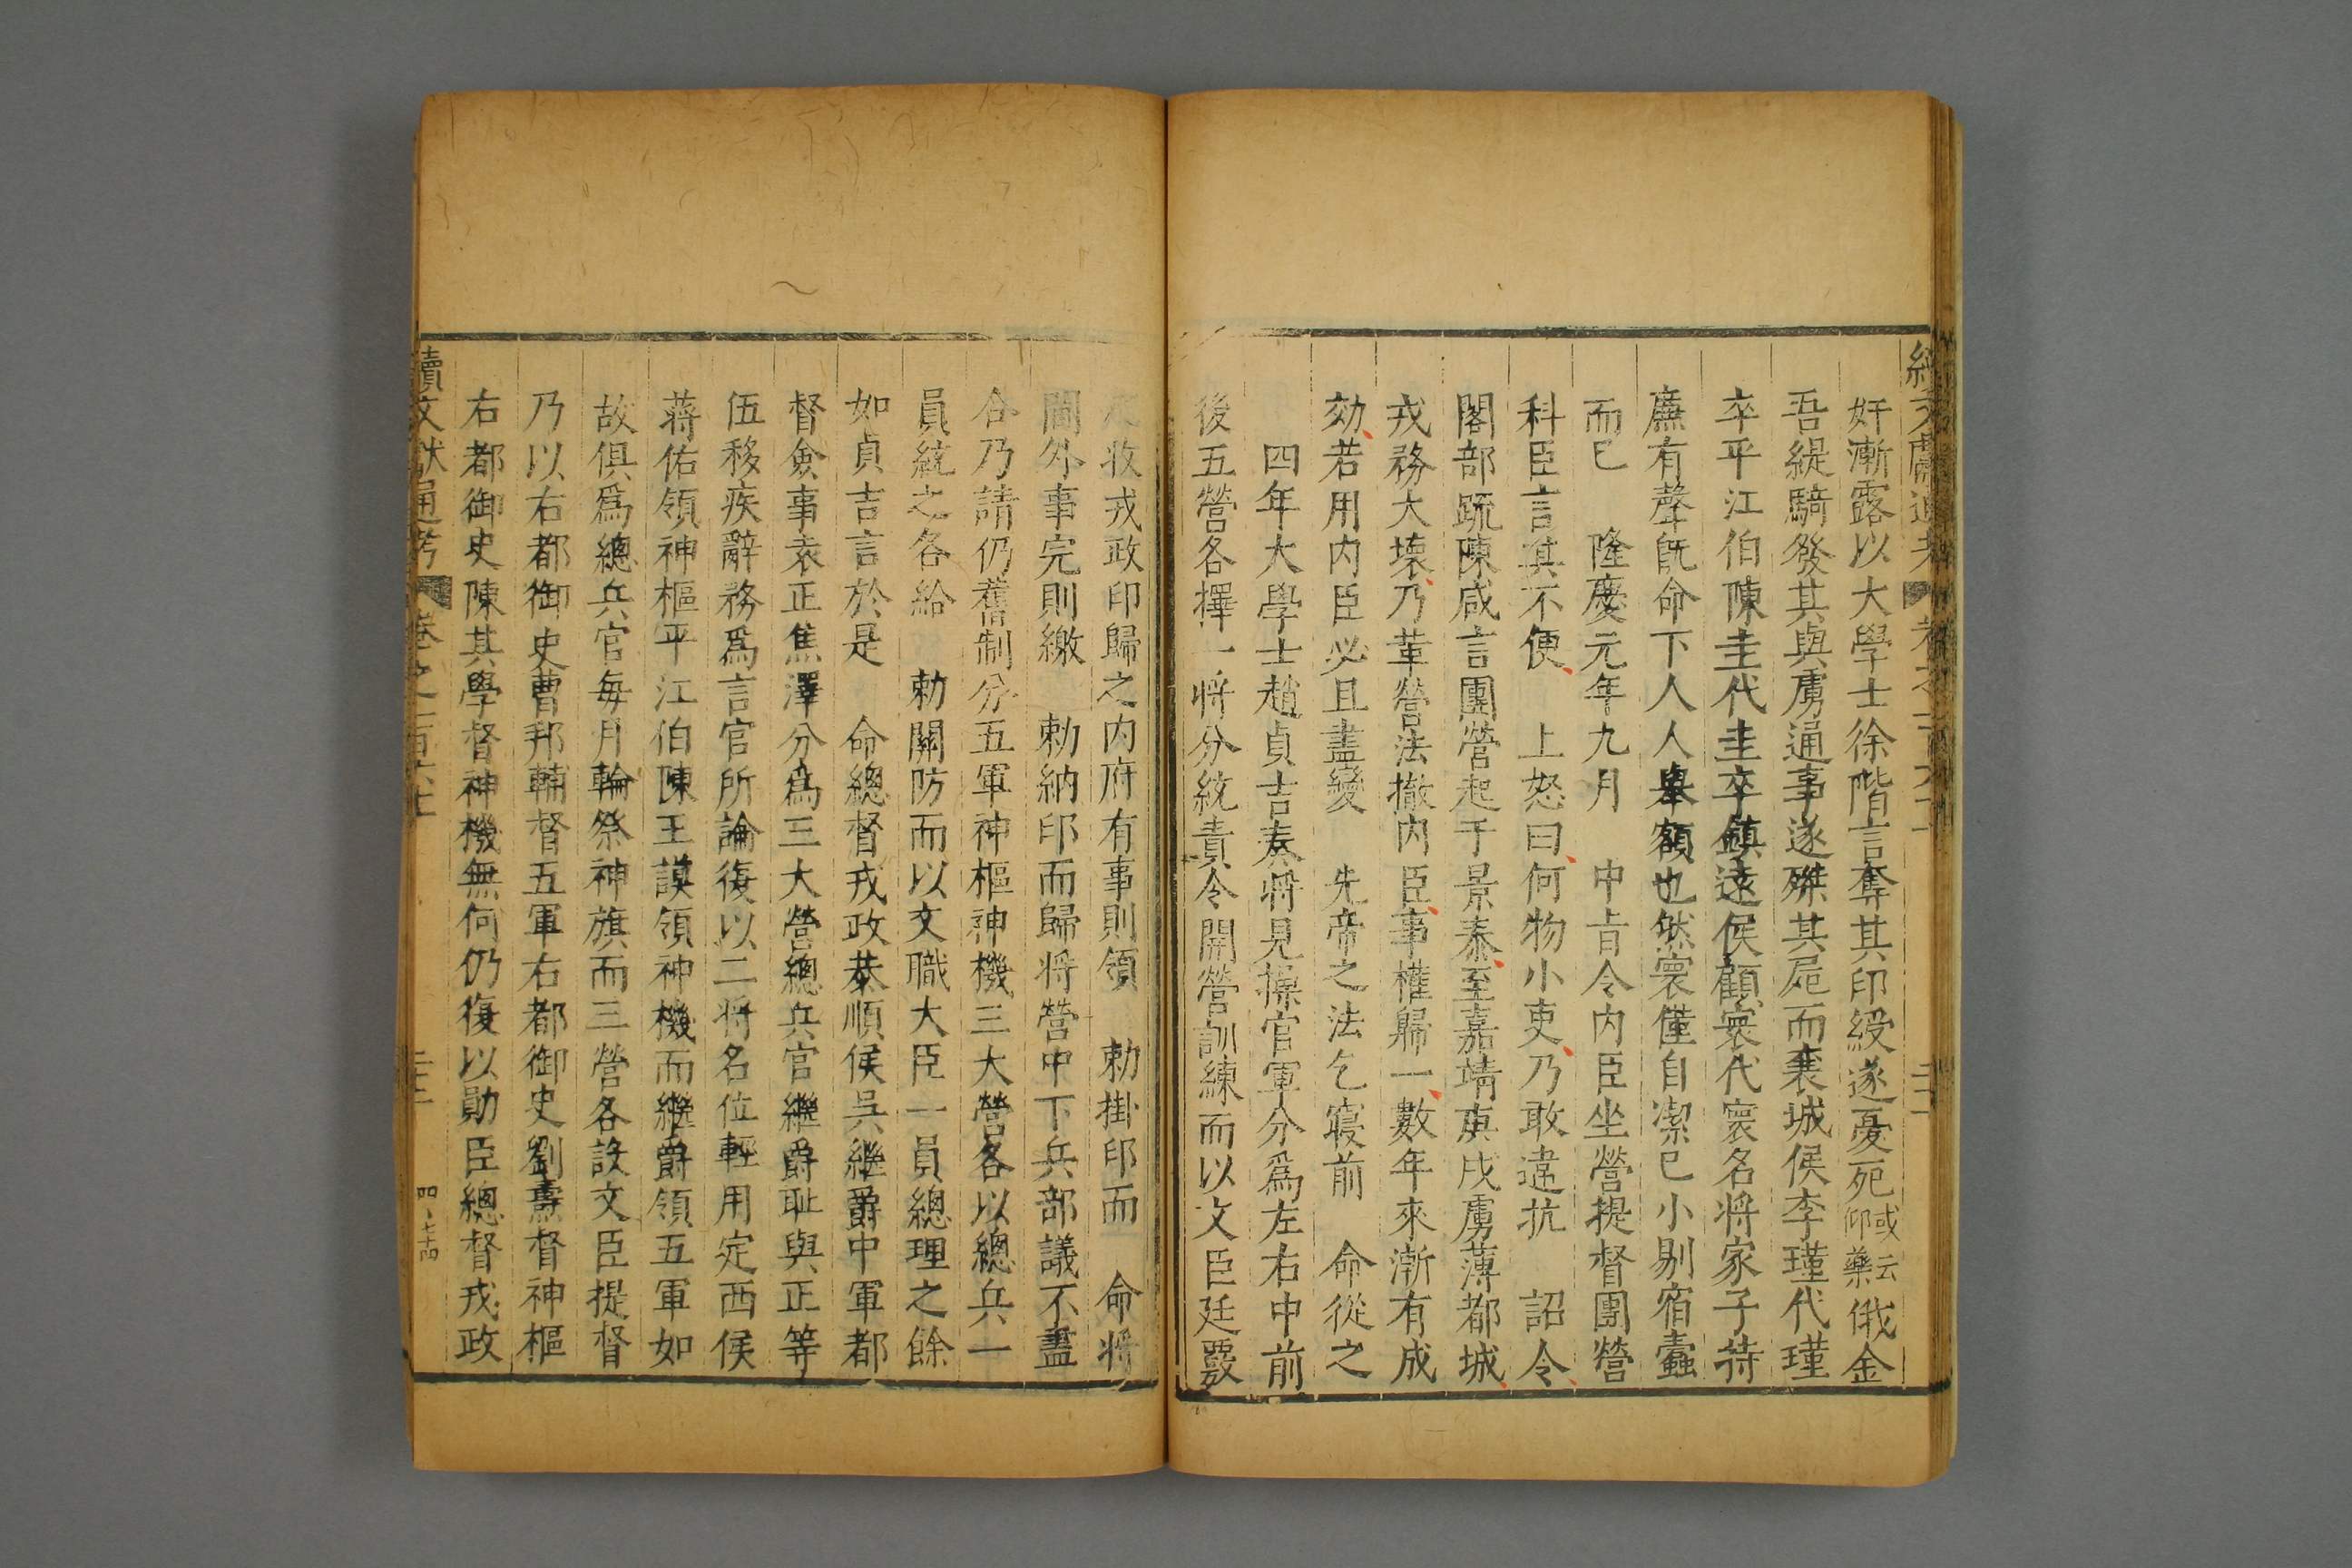 奸漸露以大學士徐階言奪其印綬遂憂死或云仰藥俄金
吾緹騎發其與虜通事遂磔其屍而襄城侯李瑾代瑾
卒平江伯陳圭代圭卒鎮遠侯顧寰代寰名將家子待
廡有聲旣命下人人舉額也然寰僅自潔巳小剔宿蠹
而巳　隆慶元年九月　中旨令內臣坐營提督團營
科臣言其不便　上怒曰何物小吏乃敢違抗　詔令
閣部䟽陳咸言團營起于景泰至嘉靖庚戌虜薄都城
戎務大壞乃革營法撤內臣事權歸一數年來漸有成
効若用內臣必且盡變　先帝之法乞寢前　命從之
四年大學士趙貞吉奏將見操官軍分爲左右中前
後五營各擇一將分統責令開營訓練而以文臣廷覈
收戎政印歸之內府有事則領　勅掛印而　命將
閫外事完則繳　勅納印而歸將營中下兵部議不盡
合乃請仍舊制分五軍神樞神機三大營各以總兵一
員統之各給　勅關防而以文職大臣一員總理之餘
如貞吉言於是　命總督戎政恭順侯吳繼爵中軍都
督僉事袁正焦澤分爲三大營總兵官繼爵耻與正等
伍移疾辭務爲言官所論復以二將名位輕用定西侯
蔣佑領神樞平江伯陳王謨領神機而繼爵領五軍如
故俱爲總兵官每月輪祭神旗而三營各設文臣提督
乃以右都御史曹邦輔督五軍右都御史劉燾督神樞
右都御史陳其學督神機無何仍復以勛臣總督戎政
續文獻通考　卷之一百六十　　四、七十四